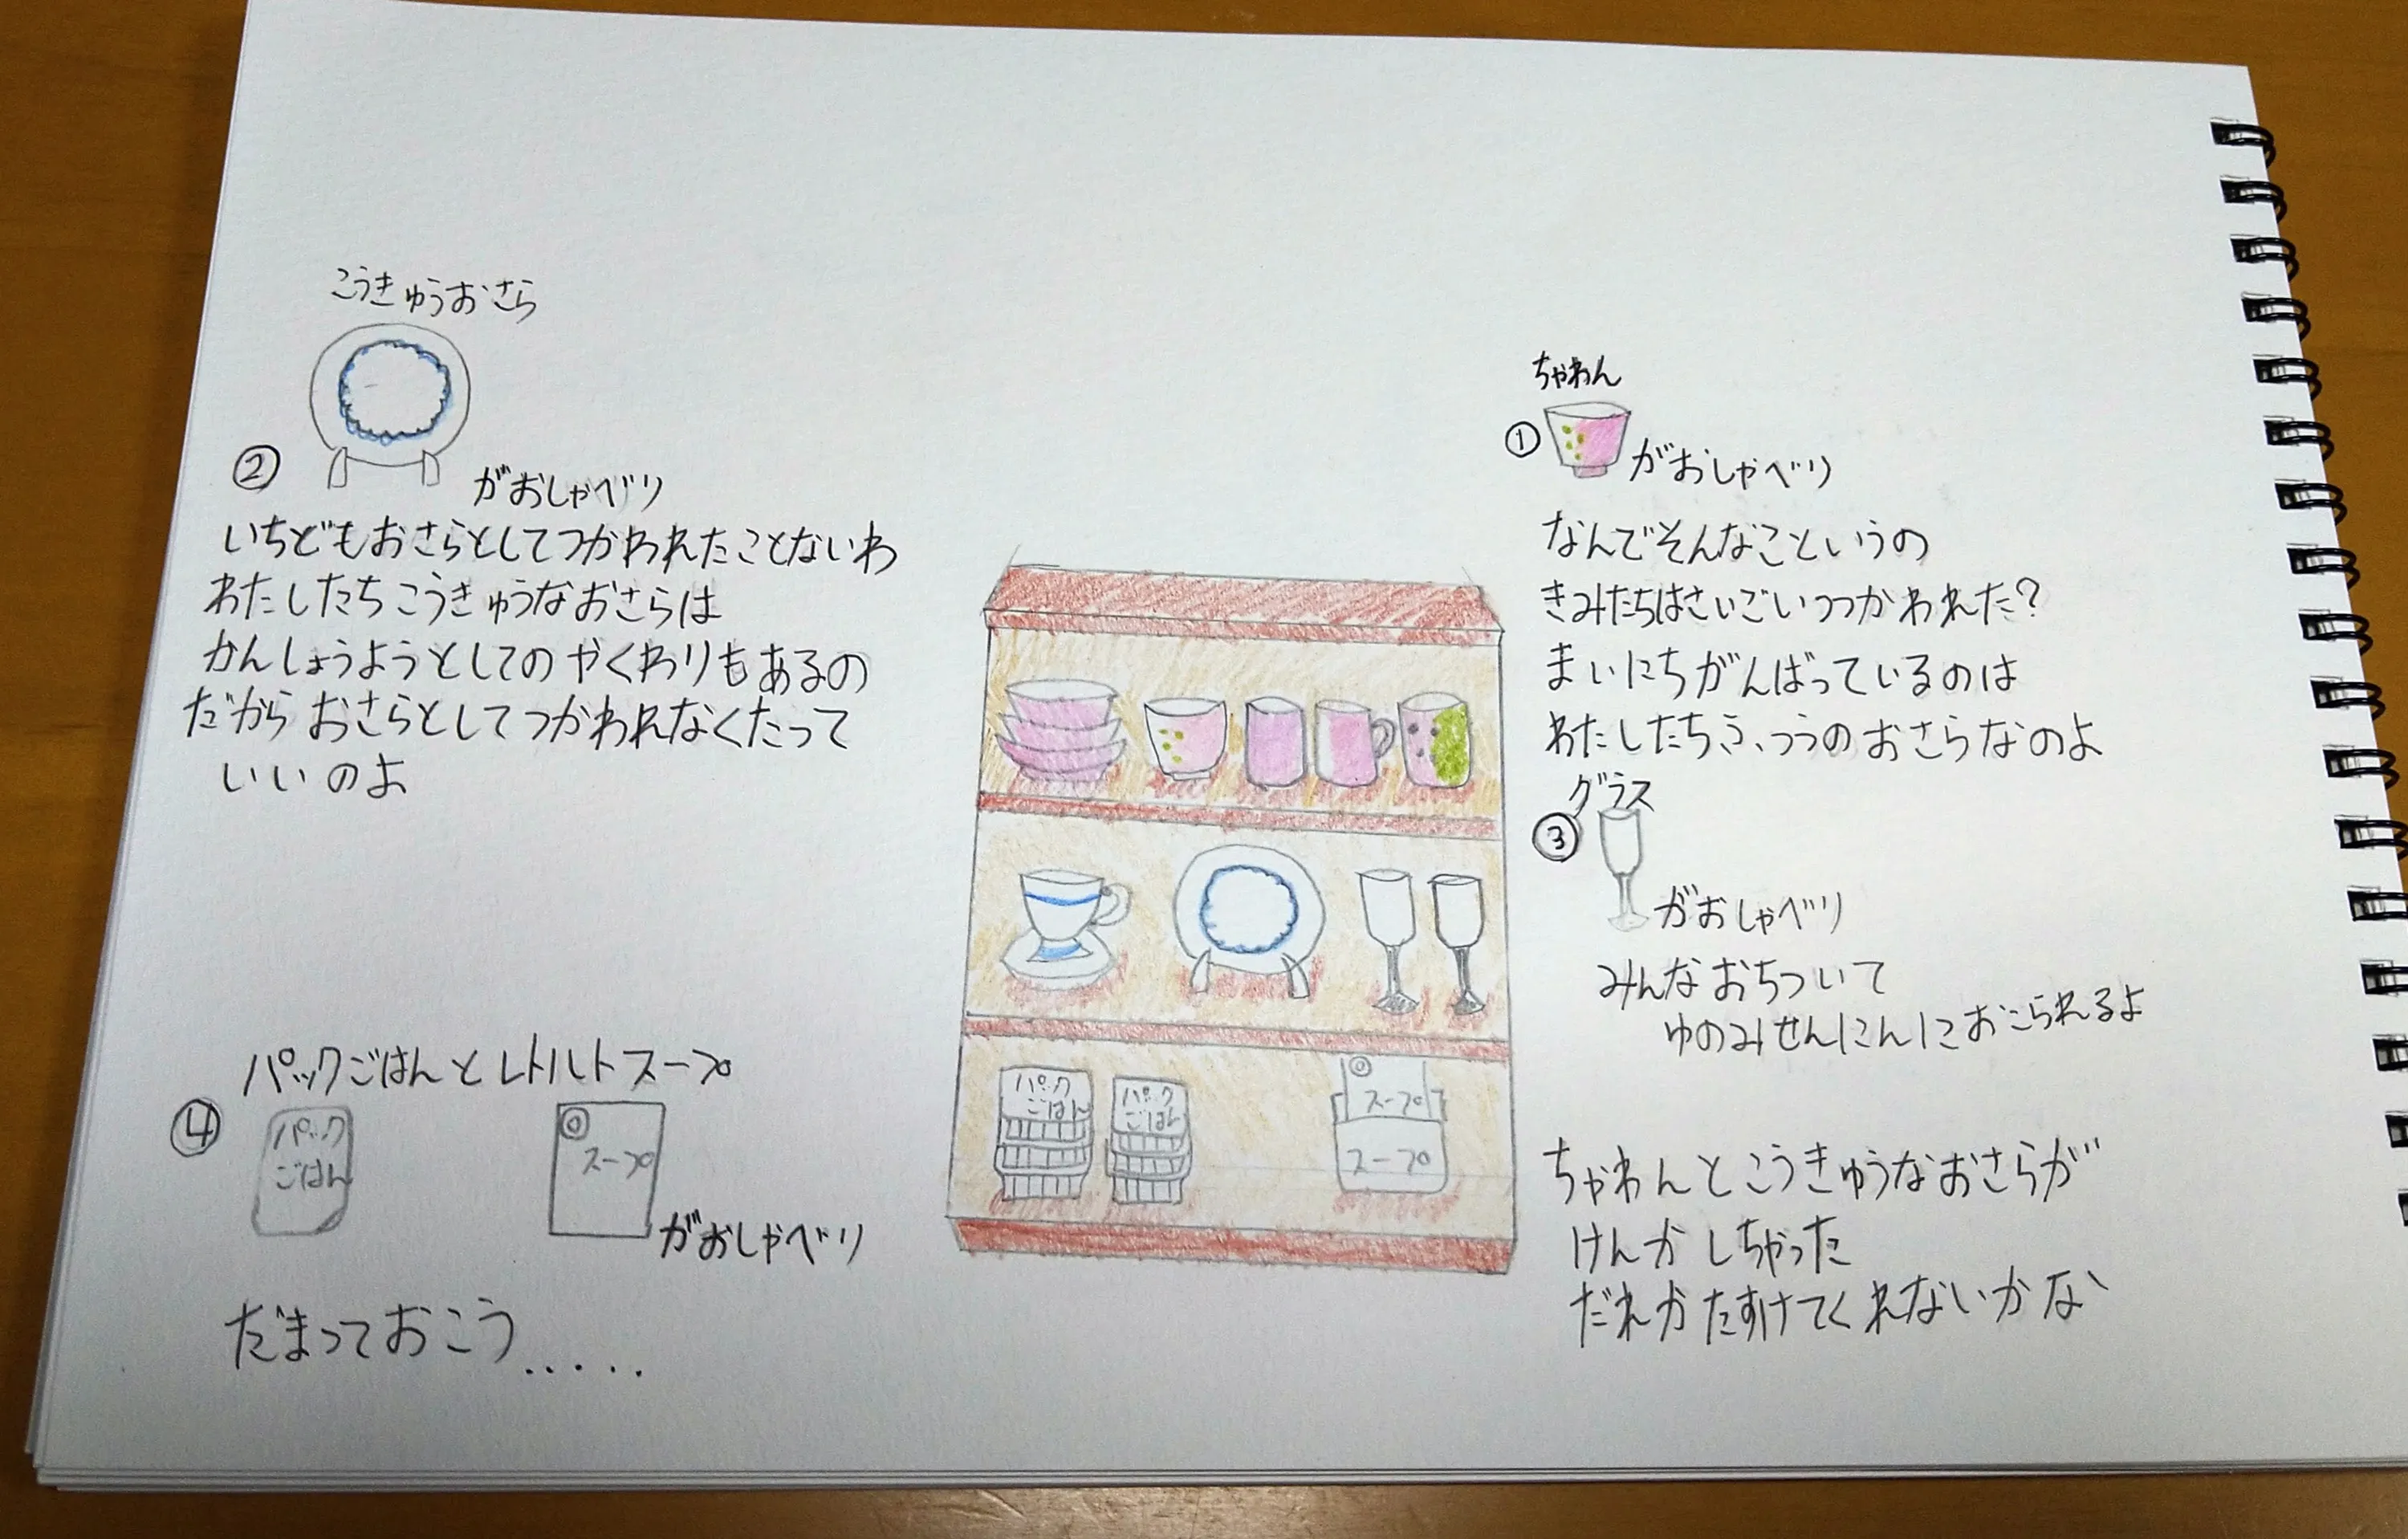 ちゃわん
①
がおしゃべり
なんでそんなこというの
きみたちはさいごいつつかわれた？
まいにちがんばっているのは
わたしたちふつうのおさらなのよ
こうきゅうおさら
②
がおしゃべり
いちどもおさらとしてつかわれたことないわ
わたしたちこうきゅうなおさらは
かんしょうようとしてのやくわりもあるの
だからおさらとしてつかわれなくたって
いいのよ
グラス
③
がおしゃべり
みんなおちついて
ゆのみせんにんにおこられるよ
パックごはんとレトルトスープ
④
パック
ごはん
スープ
がおしゃべり
だまっておこう.....
ちゃわんとこうきゅうなおさらが
けんかしちゃった
だれかたすけてくれないかな
パック
ごはん
パック
ごはん
スープ
スープ